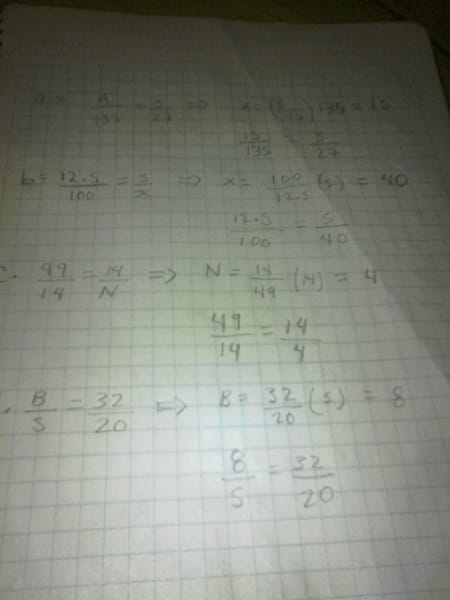 a = A/135 = 3/27 => A = (3/27) 135 = 15
15/135 = 3/27
b = 12.5/100 = 5/x => x = 100/12.5 (5) = 40
12.5/100 = 5/40
c. 49/14 = 14/N => N = 14/49 (14) = 4
49/14 = 14/4
. B/5 = 32/20 => B = 32/20 (5) = 8
8/5 = 32/20